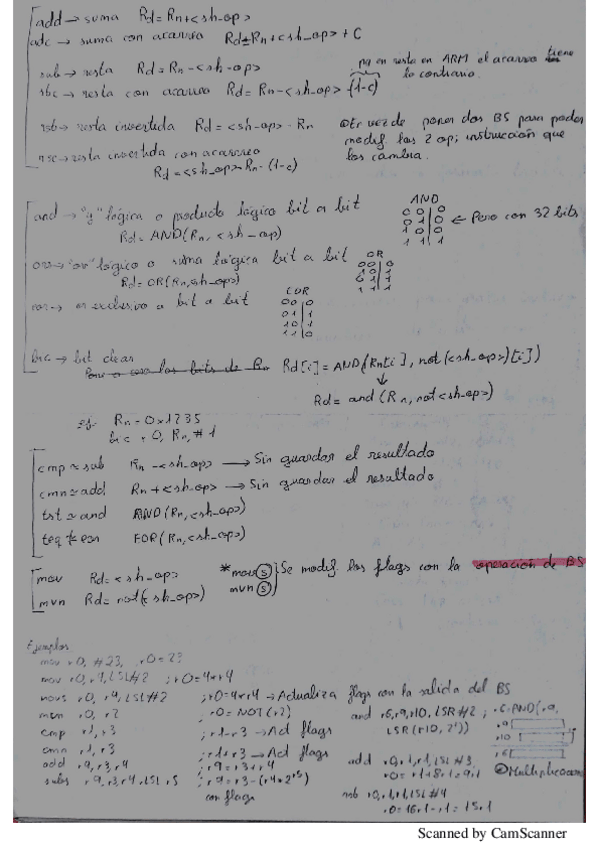 add → suma Rd = Rn + <sh_op>
adc → suma con acarreo Rd = Rn + <sh_op> + C
sub → resta Rd = Rn - <sh_op>
pq en resta en ARM el acarreo tiene
lo contrario.
sbc → resta con acarreo Rd = Rn - <sh_op> - (1-c)
rsb → resta invertida Rd = <sh_op> - Rn
En vez de poner dos BS para poder
modif. los 2 op; instrucción que
los cambia.
rsc → resta invertida con acarreo
Rd = <sh_op> - Rn - (1-c)
and → "y" lógica o producto lógico bit a bit
Rd = AND(Rn, <sh_op)
AND
0 0 | 0
0 1 | 0
1 0 | 0
1 1 | 1
← Pero con 32 bits
orr → "or" lógico o suma lógica bit a bit
Rd = OR(Rn, <sh_op>)
OR
0 0 | 0
0 1 | 1
1 0 | 1
1 1 | 1
eor → or exclusivo a bit a bit
EOR
0 0 | 0
0 1 | 1
1 0 | 1
1 1 | 0
bic → bit clear
Pone a cero los bits de Rn Rd[i] = AND(Rn[i], not(<sh_op>)[i])
↓
Rd = and (Rn, not <sh_op>)
ej. Rn = 0x1235
bic r0, Rn, #1
cmp ≈ sub Rn - <sh_op> → Sin guardar el resultado
cmn ≈ add Rn + <sh_op> → Sin guardar el resultado
tst ≈ and AND(Rn, <sh_op>)
teq ≈ eor EOR(Rn, <sh_op>)
mov Rd = <sh_op>
mvn Rd = not(<sh_op>)
* mov(s)
mvn(s)
Se modif. los flags con la operación de BS
Ejemplos
mov r0, #23 ; r0=23
mov r0, r4, LSL#2 ; r0=4*r4
movs r0, r4, LSL#2 ; r0=4*r4 → Actualiza flags con la salida del BS
mvn r0, r2 ; r0=NOT(r2)
cmp r1, r3 ; r1-r3 → Act flags
cmn r1, r3 ; r1+r3 → Act flags
add r9, r3, r4 ; r9=r3+r4
subs r9, r3, r4, LSL r5 ; r9=r3-(r4*2^r5)
con flags
and r6, r9, r10, LSR #2 ; r6=AND(r9,
LSR(r10, 2))
r9
r10
r6
add r0, r1, r1, LSL #3
r0 = r1+8r1 = 9r1
Multiplicacion
rsb r0, r1, r1, LSL #4
r0 = 16r1 - r1 = 15r1
Scanned by CamScanner